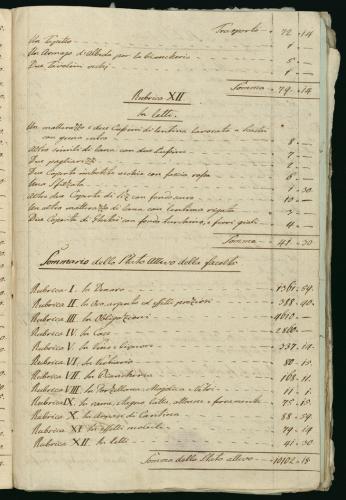 Trasporto - 72 - 14
Un Tapetto - 1 -
Un Armajo d'Albedo per la biancheria - 5 -
Due Tavolini vechj - 1 -
Somma - 79 - 14
Rubrica XII
In letti.
Un matterazzo e due Cussini di lentima lavorata a
con grena entro - 8 -
Altro simile di lana con due Cussini - 7 -
Due pagliarizzi - 2 -
Due Coperte imbotite vechie con fascia rossa - 6 -
Una - 1 - 30
Altre due Coperte di con fondo scuro - 10 -
Un altro matterazzo di lana con lentima rigata - 3 -
Due Coperte di con fondo turchino, a fiori gialli - 4 -
Somma - 41 - 30
Sommario dello Stato Attivo della facoltà
Rubrica I. In Denaro - 1361 - 59
Rubrica II. In Oro, argento ed effetti preziosi - 388 - 40
Rubrica III. In Obligazioni - 4610 -
Rubrica IV. In Case
Rubrica V. In Vino e Liquori - 337 - 14
Rubrica VI. In Vestiario - 80 - 15
Rubrica VII. In Biancheria - 108 - 11
Rubrica VIII. In Porzellana, Majolica e Vetri - 11 - 1
Rubrica IX. In rame, stagno, latta, ottone e feramenta - 75 - 15
Rubrica X. In Arnesi di Cantina - 88 - 59
Rubrica XI. In effetti mobili - 79 - 14
Rubrica XII. In letti - 41 - 30
Somma dello Stato attivo - 10102 - 18